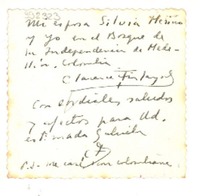 Mi esposa Silvia Merino
y yo en el Bosque de
la Independencia de Mede-
llín, Colombia
Clarence Finlayson
Con cordiales saludos
y afectos para Ud.
estimada Gabriela
CF
P.D. me casé con colombiana.